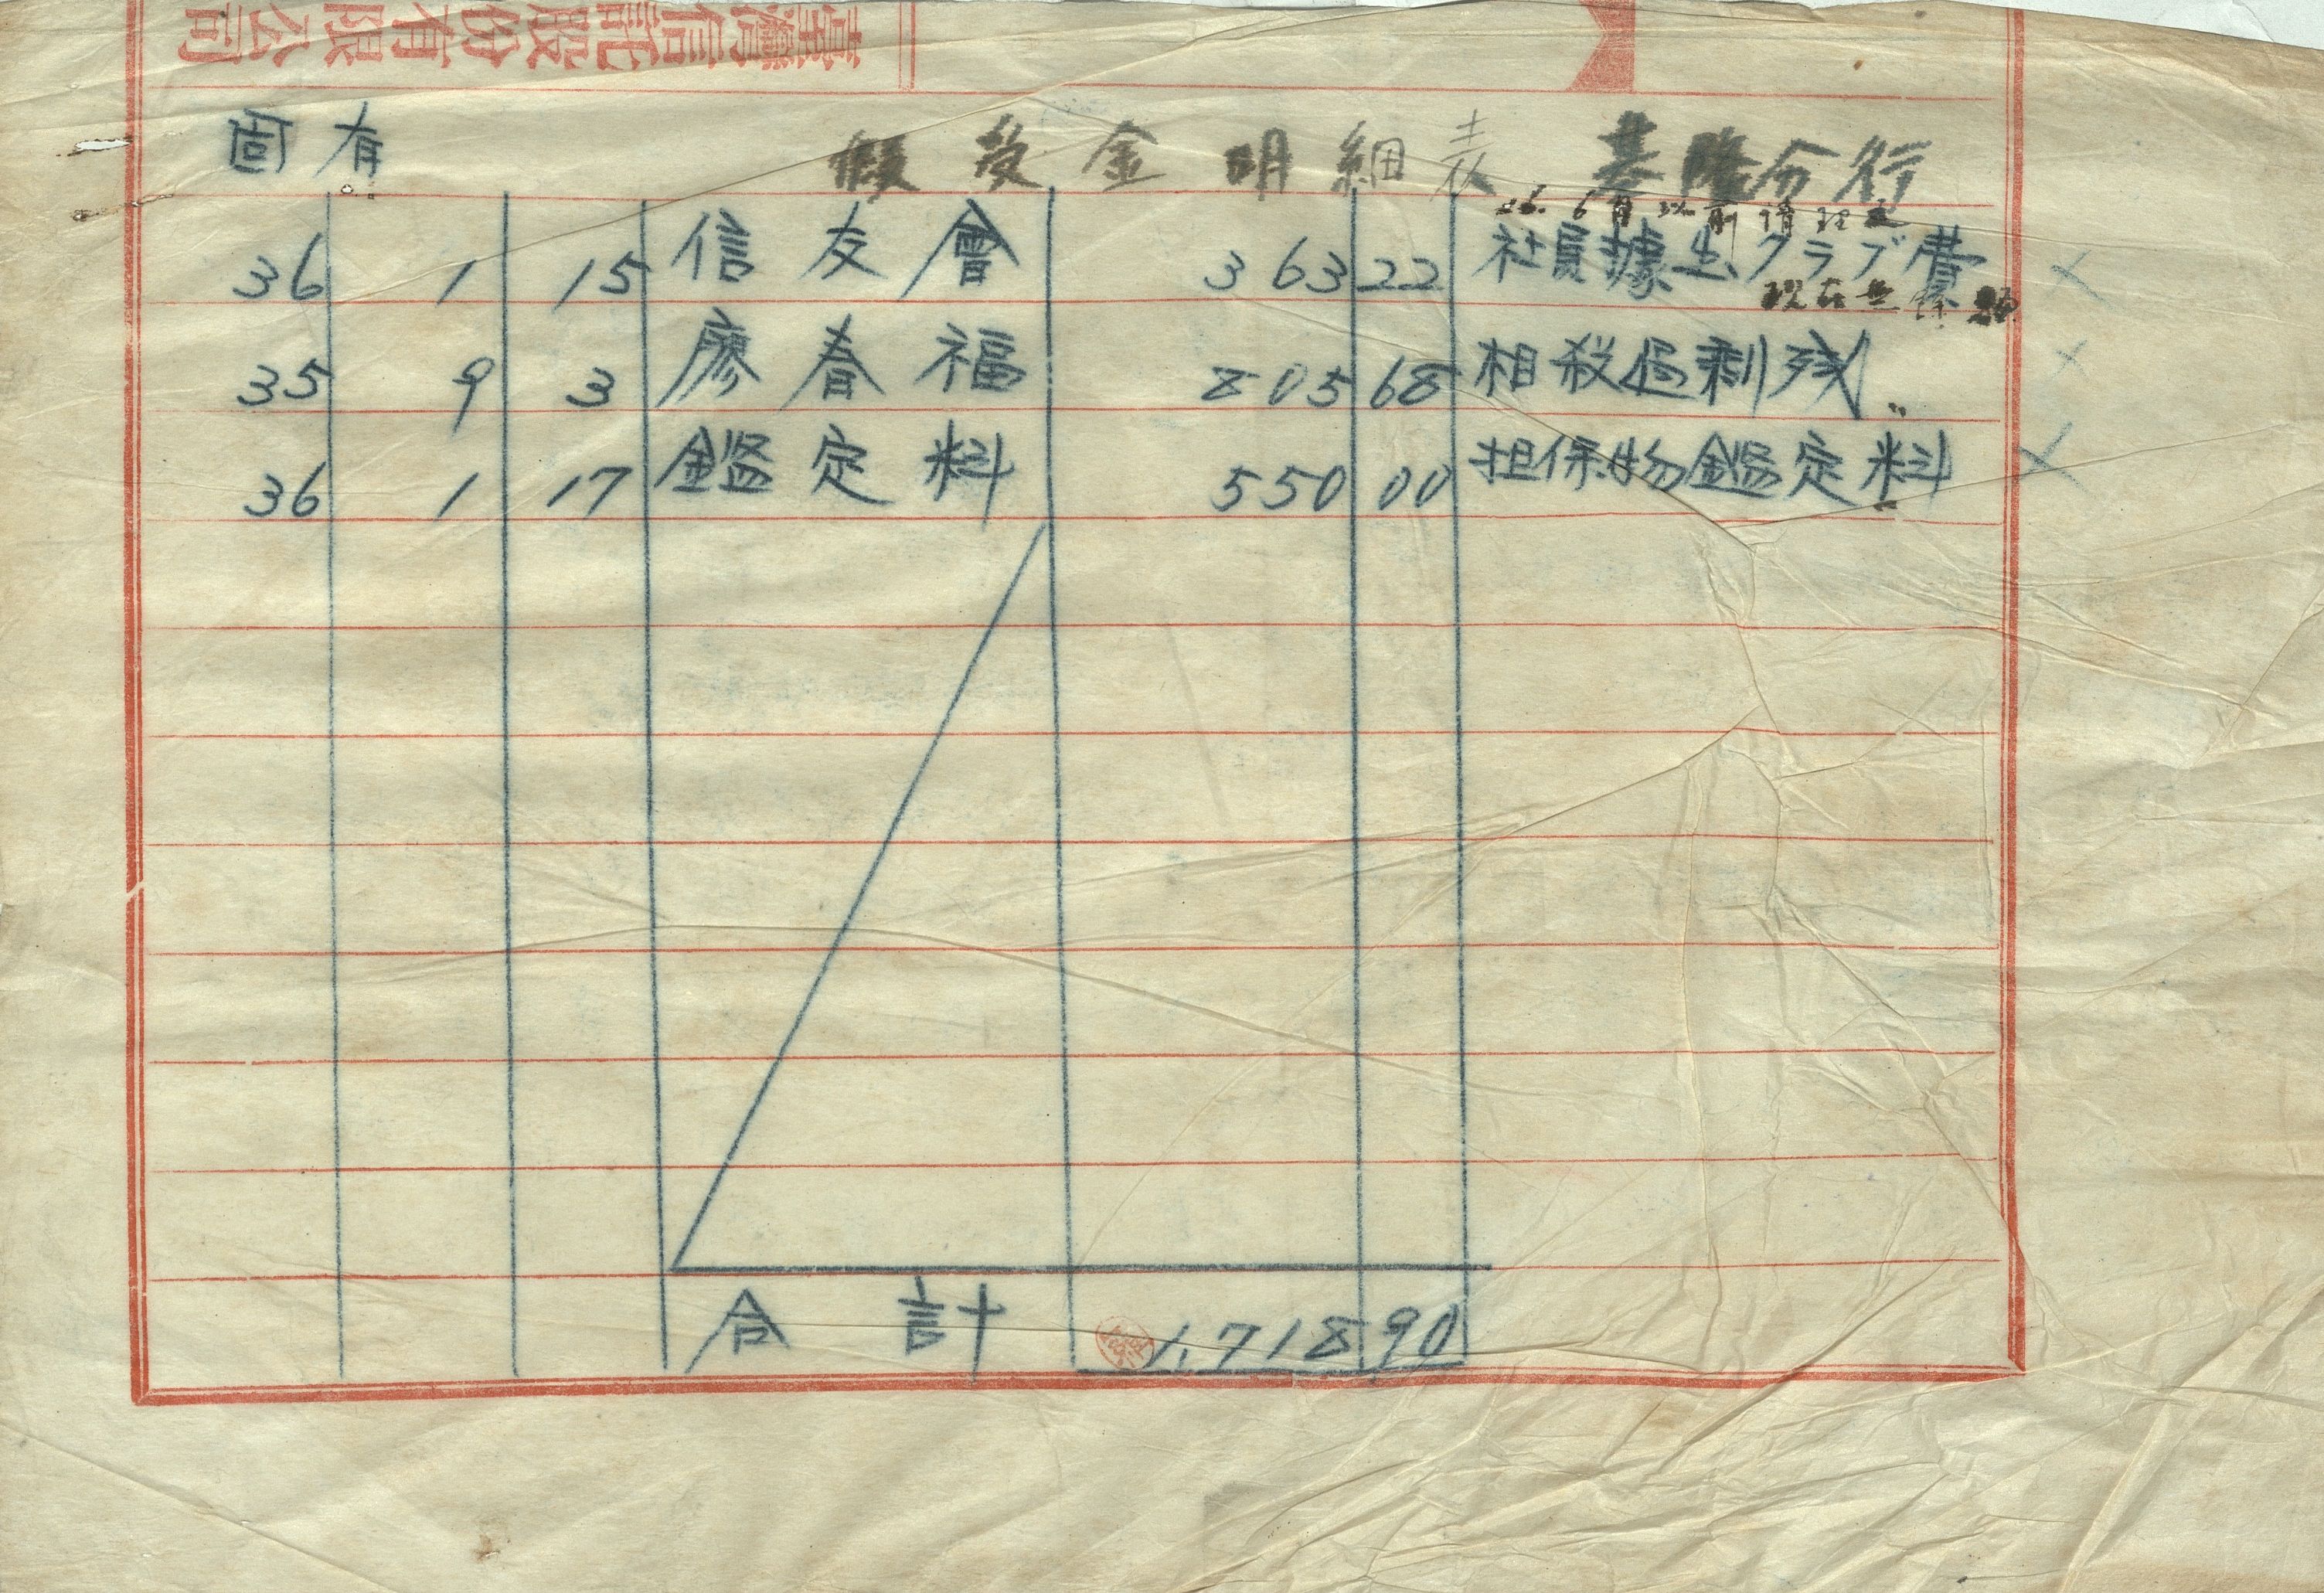 臺灣信託股份有限公司
固有 假受金明細表 基隆分行
6月 前清理
36 1 15 信友會 363 22 社員據出クラブ費 ×
現在無
35 9 3 廖春福 805 68 相殺過剩残 ×
36 1 17 鑑定料 550 00 担保物鑑定料 ×
合計 1,718 90